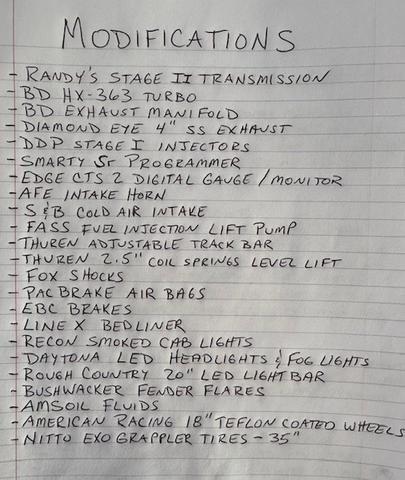 MODIFICATIONS
- RANDY'S STAGE II TRANSMISSION
- BD HX-363 TURBO
- BD EXHAUST MANIFOLD
- DIAMOND EYE 4" SS EXHAUST
- DDP STAGE I INJECTORS
- SMARTY Sr PROGRAMMER
- EDGE CTS 2 DIGITAL GAUGE/MONITOR
- AFE INTAKE HORN
- S&B COLD AIR INTAKE
- FASS FUEL INJECTION LIFT PUMP
- THUREN ADJUSTABLE TRACK BAR
- THUREN 2.5" COIL SPRINGS LEVEL LIFT
- FOX SHOCKS
- PAC BRAKE AIR BAGS
- EBC BRAKES
- LINE X BEDLINER
- RECON SMOKED CAB LIGHTS
- DAYTONA LED HEADLIGHTS & FOG LIGHTS
- ROUGH COUNTRY 20" LED LIGHT BAR
- BUSHWACKER FENDER FLARES
- AMSOIL FLUIDS
- AMERICAN RACING 18" TEFLON COATED WHEELS
- NITTO EXO GRAPPLER TIRES - 35"